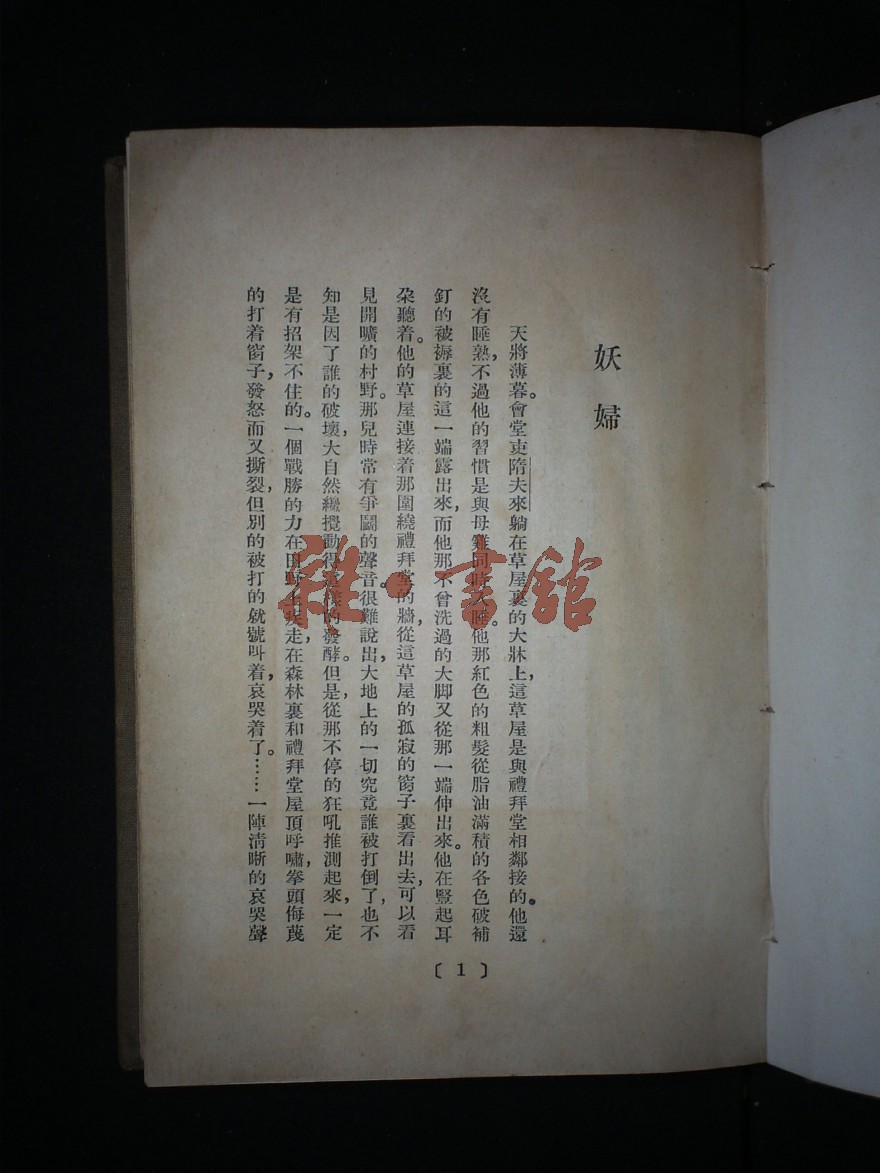 妖婦
天將薄暮。會堂吏隋夫來躺在草屋裏的大牀上，這草屋是與禮拜堂相鄰接的。他還
沒有睡熟，不過他的習慣是與母雞同時入睡。他那紅色的粗髮從脂油滿積的各色破補
釘的被褥裏的這一端露出來，而他那不曾洗過的大脚又從那一端伸出來。他在豎起耳
朶聽着。他的草屋連接着那圍繞禮拜堂的牆，從這草屋的孤寂的窗子裏看出去，可以看
見開曠的村野。那兒時常有爭鬭的聲音。很難說出，大地上的一切究竟誰被打倒了，也不
知是因了誰的破壞，大自然纔攪動得這樣的發酵。但是，從那不停的狂吼推測起來，一定
是有招架不住的。一個戰勝的力在田野上疾走，在森林裏和禮拜堂屋頂呼嘯，拳頭侮蔑
的打着窗子，發怒而又撕裂，但別的被打的就號叫着，哀哭着了。……一陣淸晰的哀哭聲
〔1〕
雜·書館